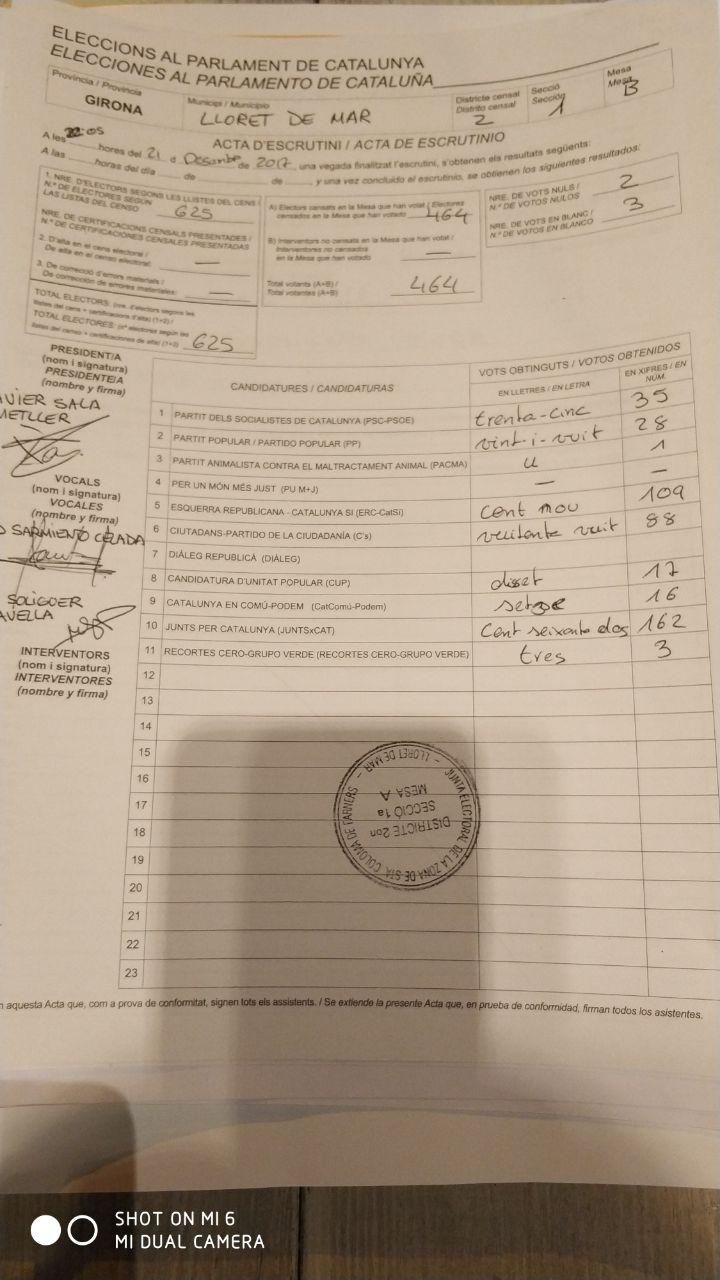 ELECCIONS AL PARLAMENT DE CATALUNYA
ELECCIONES AL PARLAMENTO DE CATALUÑA
Província / Provincia
GIRONA
Municipi / Municipio
LLORET DE MAR
Districte censal
Distrito censal
2
Secció
Sección
1
Mesa
Mesa
B
ACTA D'ESCRUTINI / ACTA DE ESCRUTINIO
A les 22:05 hores del 21 d Desembre de 2017, una vegada finalitzat l'escrutini, s'obtenen els resultats següents:
A las horas del día de de y una vez concluido el escrutinio, se obtienen los siguientes resultados:
1. NRE. D'ELECTORS SEGONS LES LLISTES DEL CENS /
N.º DE ELECTORES SEGÚN
LAS LISTAS DEL CENSO
625
NRE. DE CERTIFICACIONS CENSALS PRESENTADES /
N.º DE CERTIFICACIONES CENSALES PRESENTADAS
2. D'alta en el cens electoral /
De alta en el censo electoral: —
3. De correcció d'errors materials /
De corrección de errores materiales: —
TOTAL ELECTORS: (nre. d'electors segons les
llistes del cens + certificacions d'alta) (1+2) /
TOTAL ELECTORES: (nº electores según las
listas del censo + certificaciones de alta) (1+2) 625
A) Electors censats en la Mesa que han votat / Electores
censados en la Mesa que han votado 464
B) Interventors no censats en la Mesa que han votat /
Interventores no censados
en la Mesa que han votado —
Total votants (A+B) /
Total votantes (A+B) 464
NRE. DE VOTS NULS /
N.º DE VOTOS NULOS 2
NRE. DE VOTS EN BLANC /
N.º DE VOTOS EN BLANCO 3
PRESIDENT/A
(nom i signatura)
PRESIDENTE/A
(nombre y firma)
VIER SALA
METLLER
VOCALS
(nom i signatura)
VOCALES
(nombre y firma)
SARMIENTO CELADA
SOLIGUER
AVELLA
INTERVENTORS
(nom i signatura)
INTERVENTORES
(nombre y firma)
CANDIDATURES / CANDIDATURAS
VOTS OBTINGUTS / VOTOS OBTENIDOS
EN LLETRES / EN LETRA
EN XIFRES / EN NÚM.
1 PARTIT DELS SOCIALISTES DE CATALUNYA (PSC-PSOE) trenta-cinc 35
2 PARTIT POPULAR / PARTIDO POPULAR (PP) vint-i-vuit 28
3 PARTIT ANIMALISTA CONTRA EL MALTRACTAMENT ANIMAL (PACMA) u 1
4 PER UN MÓN MÉS JUST (PU M+J) — —
5 ESQUERRA REPUBLICANA - CATALUNYA SÍ (ERC-CatSí) cent nou 109
6 CIUTADANS-PARTIDO DE LA CIUDADANÍA (C's) vuitanta vuit 88
7 DIÀLEG REPUBLICÀ (DIÀLEG)
8 CANDIDATURA D'UNITAT POPULAR (CUP) disset 17
9 CATALUNYA EN COMÚ-PODEM (CatComú-Podem) setze 16
10 JUNTS PER CATALUNYA (JUNTSxCAT) Cent seixanta dos 162
11 RECORTES CERO-GRUPO VERDE (RECORTES CERO-GRUPO VERDE) tres 3
12
13
14
15
16
17
18
19
20
21
22
23
JUNTA ELECTORAL DE LA ZONA DE STA. COLOMA DE FARNERS – LLORET DE MAR –
DISTRICTE 2on
SECCIÓ 1a
MESA A
aquesta Acta que, com a prova de conformitat, signen tots els assistents. / Se extiende la presente Acta que, en prueba de conformidad, firman todos los asistentes.
SHOT ON MI 6
MI DUAL CAMERA